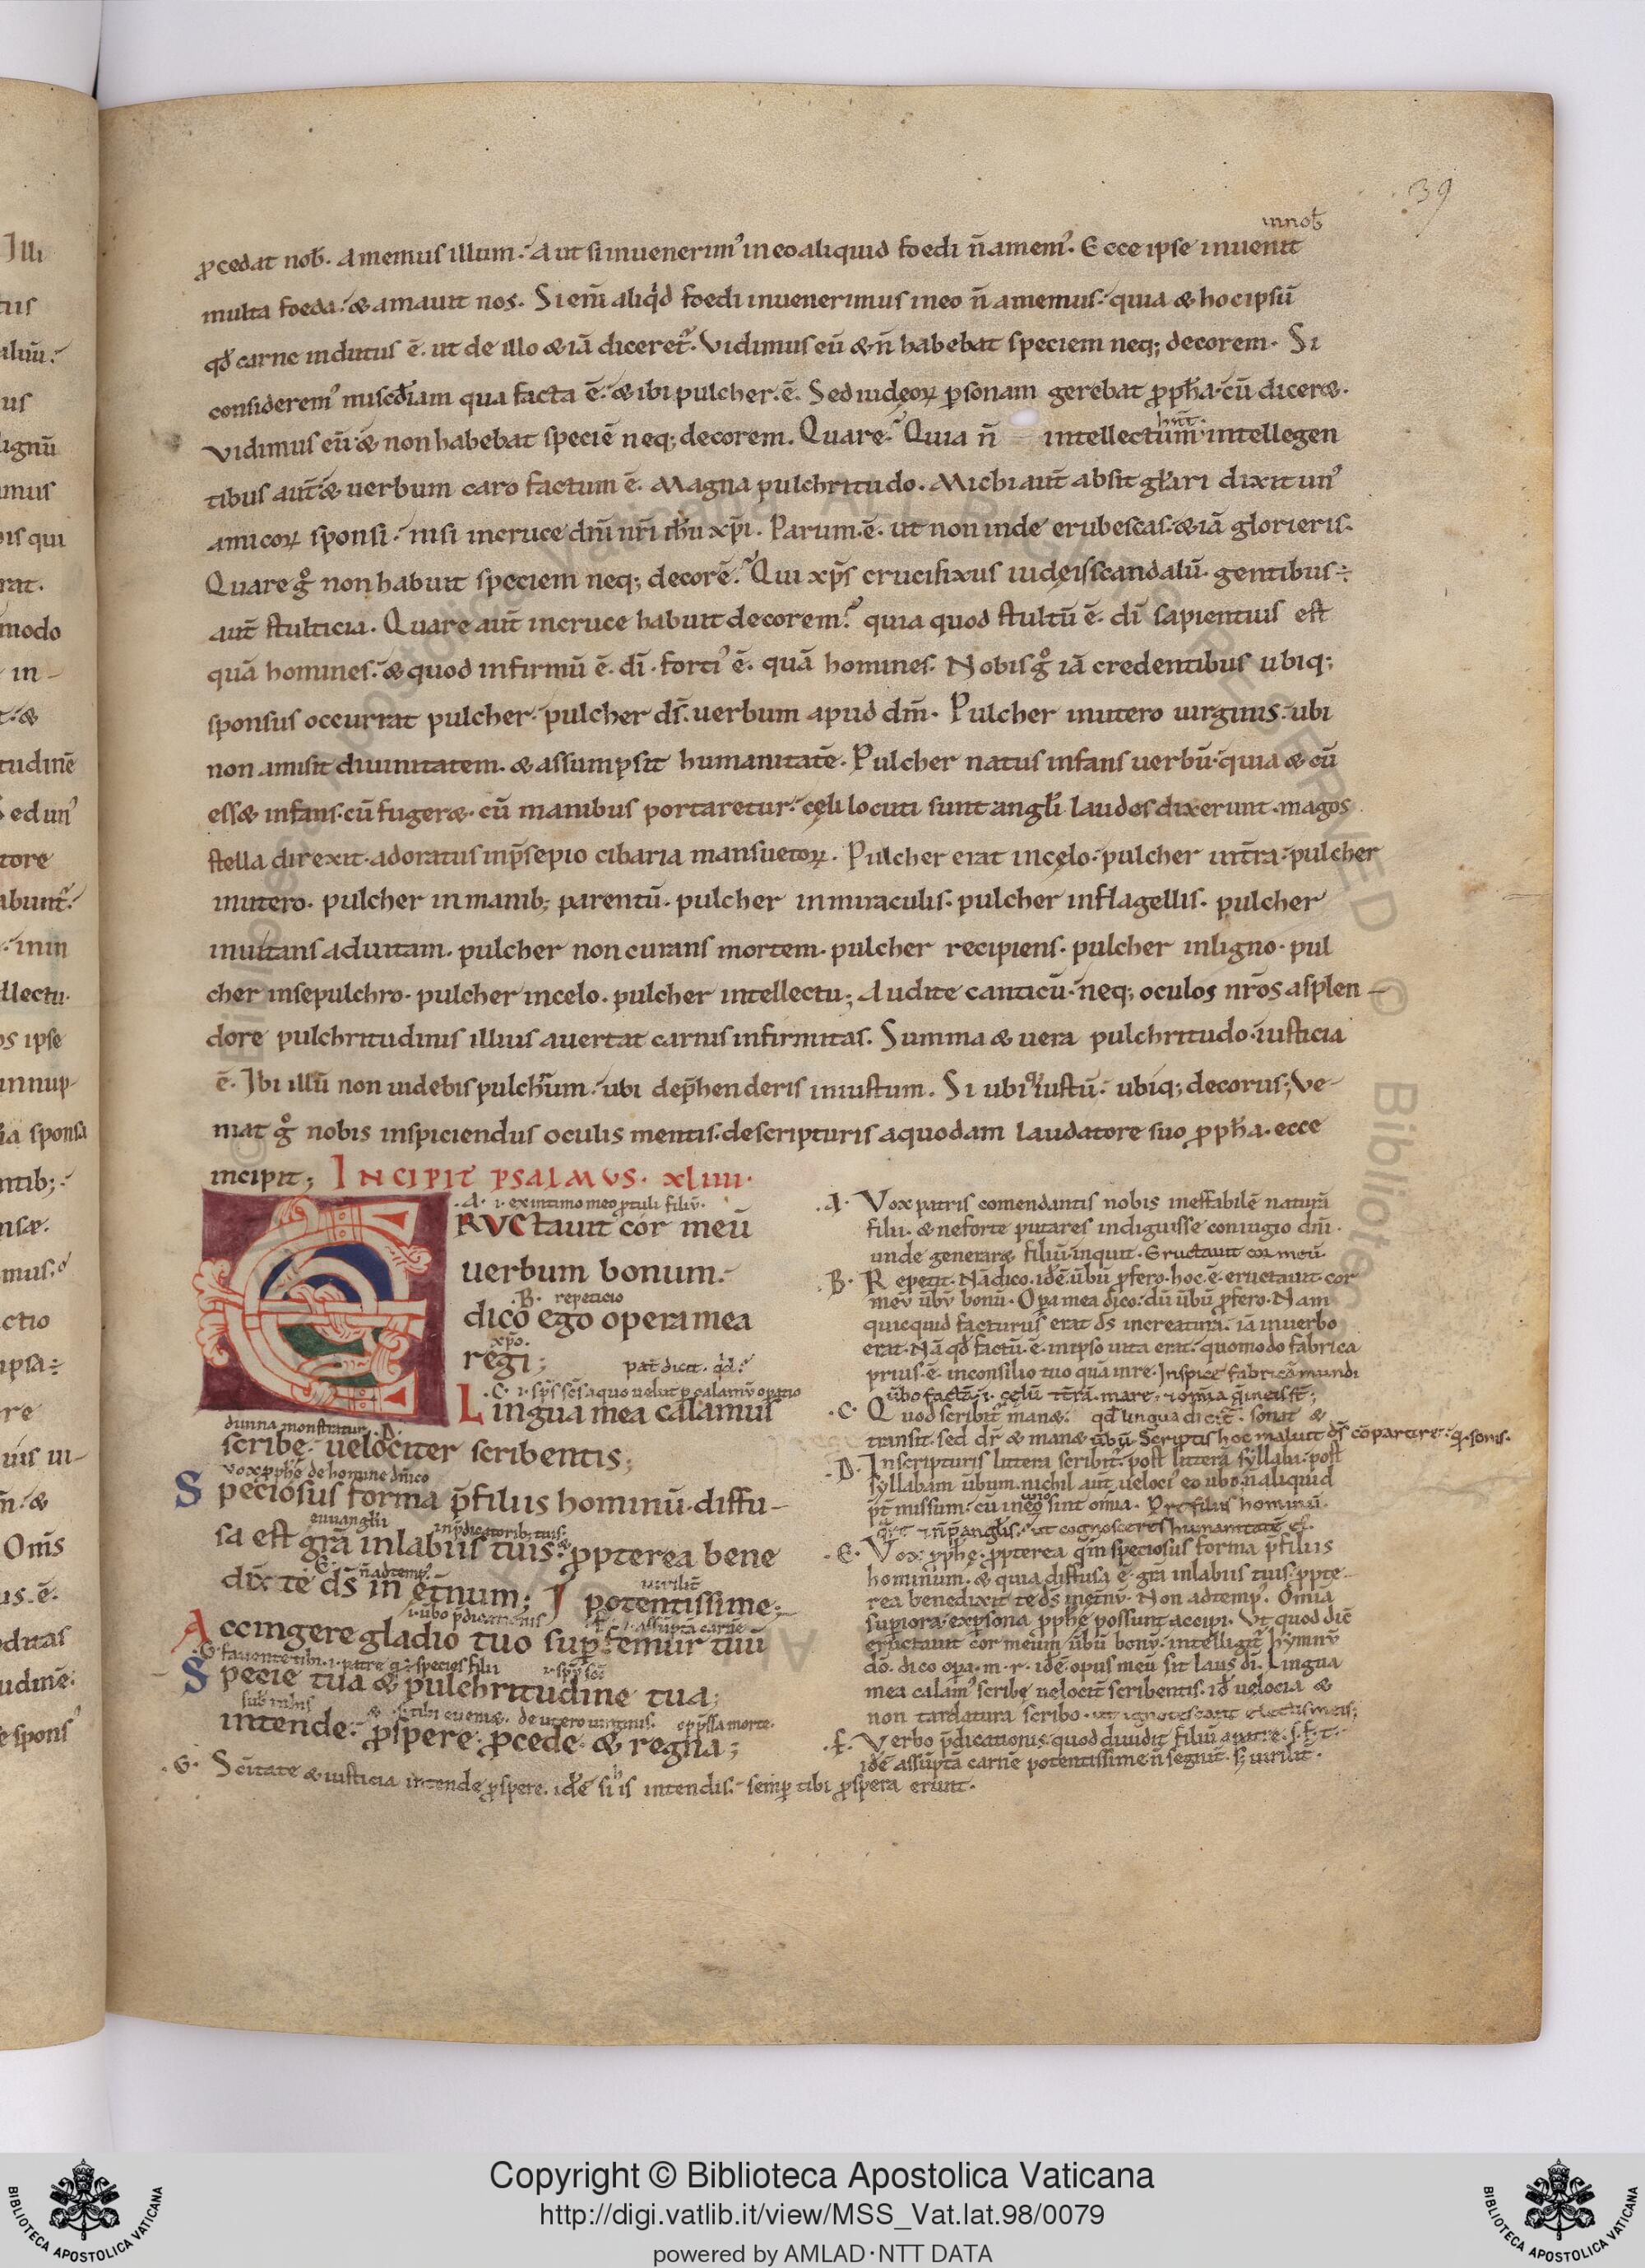 39
in nob̄
ꝓcedat nob̄. Amemus illum. Aut si inuenerimꝰ in eo aliquid foedi n̄ amemꝰ. Ecce ipse inuenit
multa foeda. & amauit nos. Si eni̅ aliqd̓ foedi inuenerimus in eo n̄ amemus. quia & hoc ipsū
qd̓ carne indutus ē. ut de illo & iā diceret᷑. Vidimus eū & n̄ habebat speciem neq; decorem. Si
consideremꝰ misc̄diam qua facta ē. & ibi pulcher. ē. Sed iudęoꝝ ꝑsonam gerebat ꝓph̄a. cū dicer&.
Vidimus eū. & non habebat speciē neq; decorem. Quare? Quia n̄ intellectum intellegen
tibus aut̄ & uerbum caro factum ē. Magna pulchritudo. Michi aut̄ absit gl̄ari dixit unꝰ
amicoꝝ sponsi. nisi in cruce dn̄i nr̄i ih̄u xp̄i. Parum. ē. ut non inde erubescas. & iā glorieris.
Quare gͦ non habuit speciem neq; decorē? Qui xp̄s crucifixus iudęis scandalū. gentibus
aut̄ stulticia. Quare aut̄ in cruce habuit decorem? quia quod stultū ē. di̅ sapientius est
quā homines. & quod infirmū ē. di̅. fortiꝰ ē. quā homines. Nobis gͦ iā credentibus ubiq;
sponsus occurrat pulcher. pulcher ds̄. uerbum apud dm̄. Pulcher in utero uirginis. ubi
non amisit diuinitatem. & assumpsit humanitatē. Pulcher natus infans uerbū. quia & cū
ess& infans. cū fuger&. cū manibus portaretur. cęli locuti sunt angl̄i laudes dixerunt. magos
stella direxit. adoratus in p̄sepio cibaria mansuetoꝝ. Pulcher erat in cęlo. pulcher in t̄ra. pulcher
in utero. pulcher in manib; parentū. pulcher in miraculis. pulcher in flagellis. pulcher
inuitans ad uitam. pulcher non curans mortem. pulcher recipiens. pulcher in ligno. pul
cher in sepulchro. pulcher in celo. pulcher intellectu; Audite canticū. neq; oculos nr̄os a splen-
dore pulchritudinis illius auertat carnis infirmitas. Summa & uera pulchritudo. iusticia
ē. Ibi illū non uidebis pulchr̄um. ubi dep̄henderis iniustum. Si ubiq; iustū. ubiq; decorus; Ve-
niat gͦ nobis inspiciendus oculis mentis. de scripturis a quodam laudatore suo ꝓph̄a. ecce
incipit; INCIPIT PSALMVS. XLIIII.
.A. i. ex intimo meo ꝓtuli filiū.
ERVCtauit cor meū
uerbum bonum.
.B. repeticio
dico ego opera mea
xp̄o.
regi; pat̄ dicit. qd̓.
.C. i. sp̄s sc̄s a quo uelut ꝑ calamū oꝑatio
Lingua mea calamus
diuina monstratur. .D.
scribę. uelociter scribentis;
vox ꝓph̄ę de homine dn̄ico
Speciosus forma p̄ filiis hominū. diffu-
euuanglii in p̄dicatorib; tuis.
sa est gr̄a in labiis tuis. ꝓpterea bene
.E. n̄ ad temp̄ꝰ.
dix̄ te ds̄ in et̄num; potentissime;
i. ūbo p̄dicationis .F. i. assūpta carne uirilit̄
Accingere gladio tuo suꝑ femur tuū
.G. fauente tibi. i. patre. species filii i. sp̄ū sc̄i
Specie tua & pulchritudine tua;
de utero uirginis. opp̄ssa morte.
intende. ꝓspere. ꝓcede. & regna;
.G. Sc̄itate & iusticia intende ꝓspere. idē si his intendis. semꝑ tibi ꝓspera erunt.
.A. Vox patris comendantis nobis ineffabilē naturā
filii. & ne forte putares indiguisse coniugio dm̄.
unde generar& filiū. inquit. Eructauit cor meū.
.B. Repetit. Nā dico. idē. ūbū ꝓfero. hoc. ē. eructauit cor
meū ūbū bonū. Oꝑa mea dico. dū ūbū ꝓfero. Nam
quicquid facturus erat ds̄ in creatura. iā in uerbo
erat. Nā qd̓ factū. ē. in ipso uita erat. quomodo fabrica
prius. ē. in consilio tuo quā in re. Inspice fabricā mundi
ūbo factā. i. cęlū t̄rā. mare. & om̄ia q̄ in eis st̄;
.C. Quod scribit᷑ man&. qd̓ lingua dicit᷑. sonat &
transit. sed dr̄ & man& ūbū. Scriptis hoc maluit ds̄ cōparare. q̄. sonis.
.D. In scripturis littera scribit᷑. post litterā syllaba. post
syllabam ūbum. nichil aut̄ uelociꝰ eo ūbo. n̄ aliquid
p̄t̄missum. cū in eo sint om̄ia. Pre filiis hominū.
ut cognosceres humanitatē ei.
.E. Vox ꝓph̄ę. ꝓpterea qm̄ speciosus forma p̄ filiis
hominum. & quia diffusa ē. gr̄a in labiis tuis. ꝓpte-
rea benedixit te ds̄ in et̄nū. Non ad tempꝰ. Omia
suꝑiora ex ꝑsona ꝓph̄ę possunt accipi. Vt quod dic̄
eructauit cor meum ūbū bonū. intelligit᷑ hymnū
dō. dico oꝑa. m. r. idē. opus meū sit laus di̅. Lingua
mea calamꝰ scribę uelocit̄ scribentis. id̓ uelocia &
non tardatura scribo. ut ignotescant electis meis;
.F. Verbo p̄dicationis. quod diuidit filiū a patre. s. f. t.
idē assūptā carnē potentissime n̄ segnit̄. s; uirilit̄.
Illi
ignū
imus
ois qui
rat.
modo
in-
tudinē
tore
llectu.
os ipse
in nup-
ia sponsa
ntib;
ctio
ipsa
re
Om̄s
us. ē.
udinē.
e sponsꝰ
Copyright © Biblioteca Apostolica Vaticana
http://digi.vatlib.it/view/MSS_Vat.lat.98/0079
powered by AMLAD·NTT DATA
BIBLIOTECA APOSTOLICA VATICANA
BIBLIOTECA APOSTOLICA VATICANA